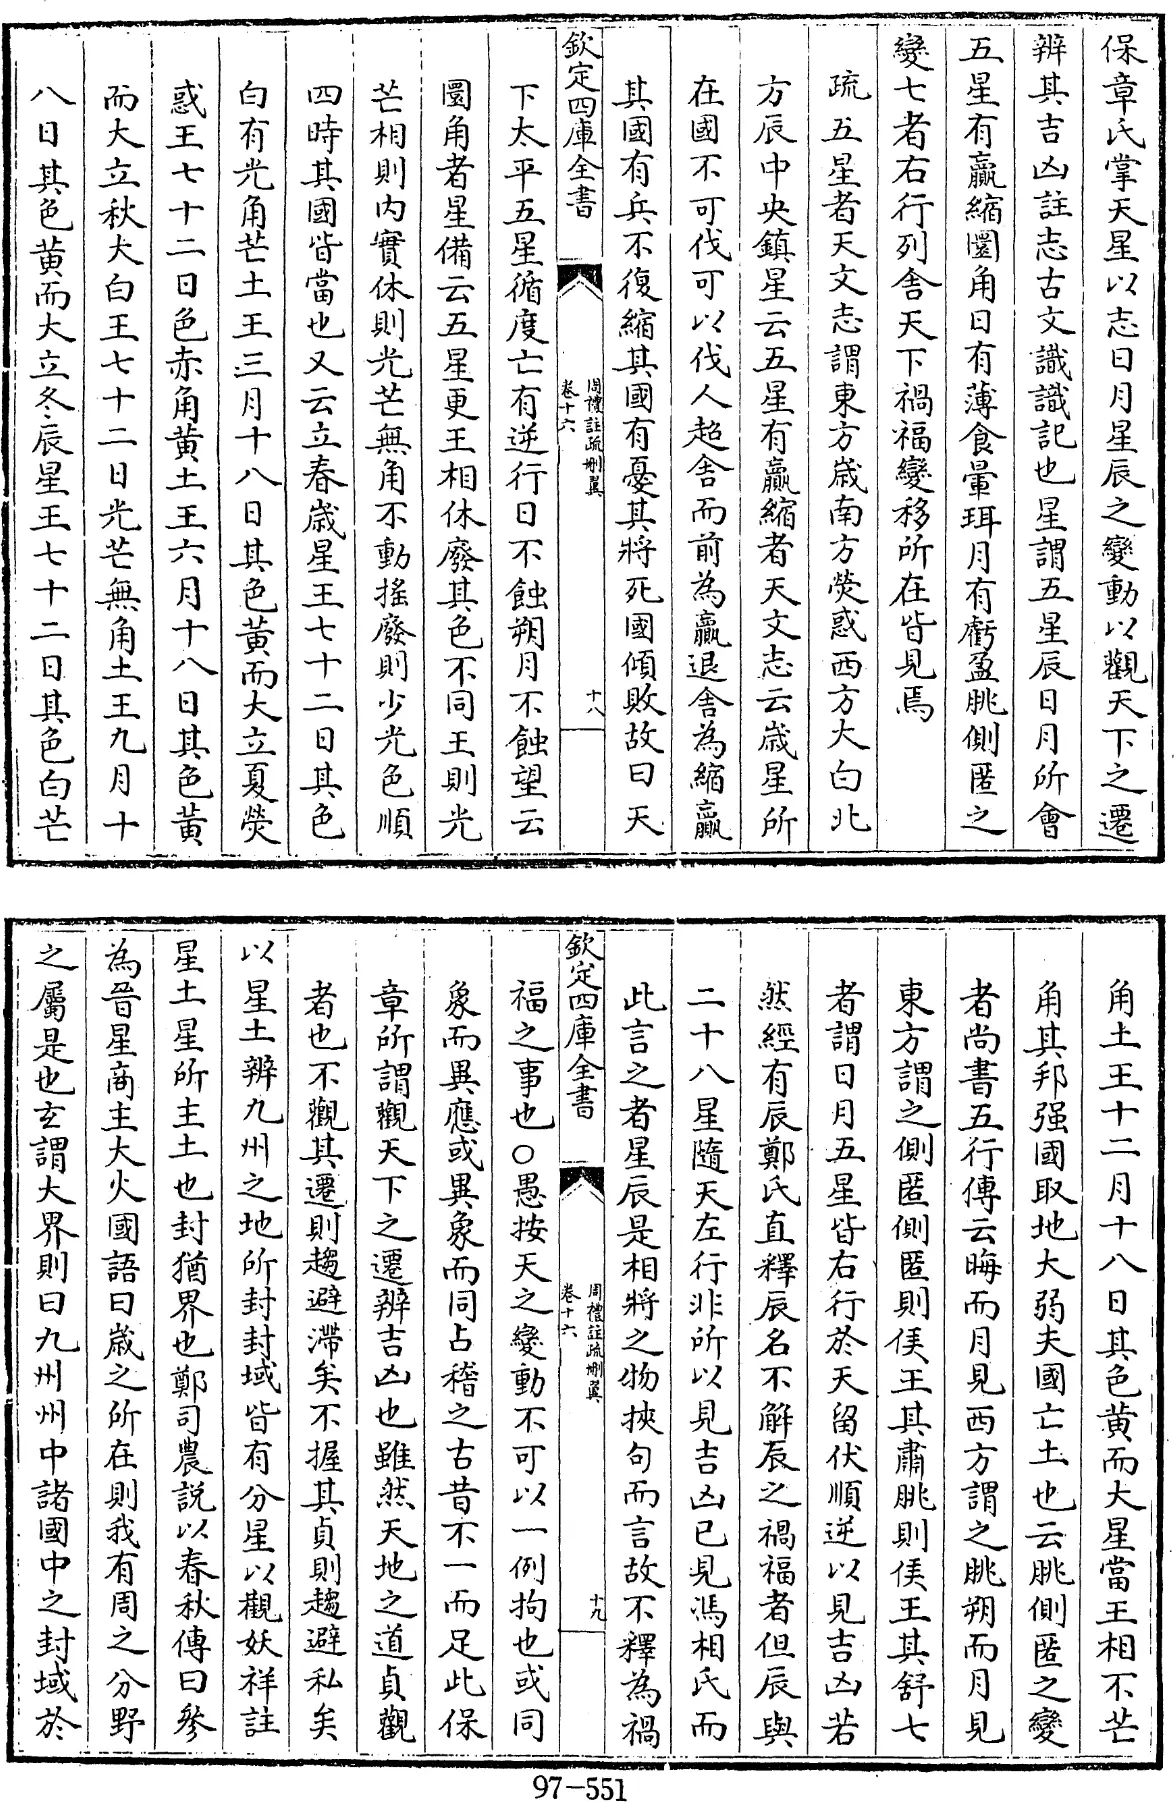 保章氏掌天星以志日月星辰之變動以觀天下之遷
辨其吉凶註志古文識識記也星謂五星辰日月所會
五星有贏縮圜角日有薄食暈珥月有虧盈朓側匿之
變七者右行列舍天下禍福變移所在皆見焉
疏五星者天文志謂東方歲南方熒惑西方大白北
方辰中央鎮星云五星有贏縮者天文志云歲星所
在國不可伐可以伐人超舍而前為贏退舍為縮贏
其國有兵不復縮其國有憂其將死國傾敗故曰天
欽定四庫全書
周禮註疏刪翼
卷十六
十八
下太平五星循度亡有逆行日不蝕朔月不蝕望云
圜角者星備云五星更王相休廢其色不同王則光
芒相則內實休則光芒無角不動搖廢則少光色順
四時其國皆當也又云立春歲星王七十二日其色
白有光角芒土王三月十八日其色黃而大立夏熒
惑王七十二日色赤角黃土王六月十八日其色黃
而大立秋大白王七十二日光芒無角土王九月十
八日其色黃而大立冬辰星王七十二日其色白芒
角土王十二月十八日其色黃而大星當王相不芒
角其邦强國取地大弱夫國亡土也云朓側匿之變
者尚書五行傳云晦而月見西方謂之朓朔而月見
東方謂之側匿側匿則侯王其肅朓則侯王其舒七
者謂日月五星皆右行於天留伏順逆以見吉凶若
然經有辰鄭氏直釋辰名不解辰之禍福者但辰與
二十八星隨天左行非所以見吉凶已見馮相氏而
此言之者星辰是相將之物挾句而言故不釋為禍
欽定四庫全書
周禮註疏刪翼
卷十六
十九
福之事也○愚按天之變動不可以一例拘也或同
象而異應或異象而同占稽之古昔不一而足此保
章所謂觀天下之遷辨吉凶也雖然天地之道貞觀
者也不觀其遷則趨避滯矣不握其貞則趨避私矣
以星土辨九州之地所封封域皆有分星以觀妖祥註
星土星所主土也封猶界也鄭司農説以春秋傳曰參
為晉星商主大火國語曰歲之所在則我有周之分野
之屬是也玄謂大界則曰九州州中諸國中之封域於
97-551